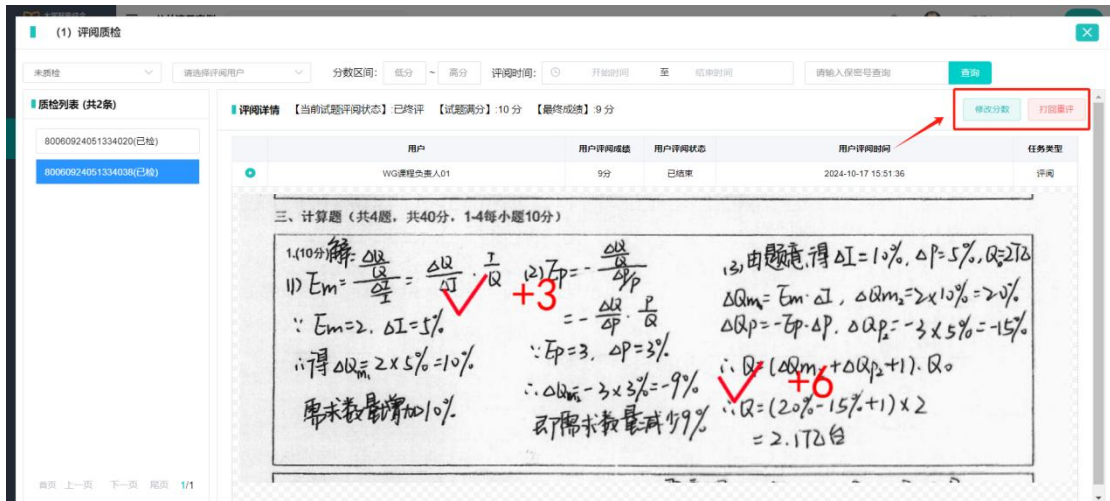 (1) 评阅质检
未质检 请选择评阅用户 分数区间: 低分 ~ 高分 评阅时间: 开始时间 至 结束时间 请输入保密号查询 查询
质检列表 (共2条)
80060924051334020(已检)
80060924051334038(已检)
首页 上一页 下一页 尾页 1/1
评阅详情 【当前试题评阅状态】:已终评 【试题满分】:10 分 【最终成绩】:9 分 修改分数 打回重评
用户 用户评阅成绩 用户评阅状态 用户评阅时间 任务类型
WG课程负责人01 9分 已结束 2024-10-17 15:51:36 评阅
三、计算题(共4题,共40分,1-4每小题10分)
1.(10分)解:
(1) Em = ΔQ/Q / ΔI/I = ΔQ/ΔI · I/Q
∵ Em=2, ΔI=5%
∴得 ΔQm₁=2×5%=10%
需求数量增加10%
+3
(2) Ep = - ΔQ/Q / ΔP/P
= - ΔQ/ΔP · P/Q
∵Ep=3, ΔP=3%
∴ΔQm₂=-3×3%=-9%
即需求数量减少9%
(3)由题意,得 ΔI=10%, ΔP=5%, Q₀=2亿
ΔQm₂=Em·ΔI, ΔQm₂=2×10%=20%
ΔQp=-Ep·ΔP, ΔQp₂=-3×5%=-15%
∴Q=(ΔQm₂+ΔQp₂+1)·Q₀
+6
∴Q=(20%-15%+1)×2
=2.1亿台